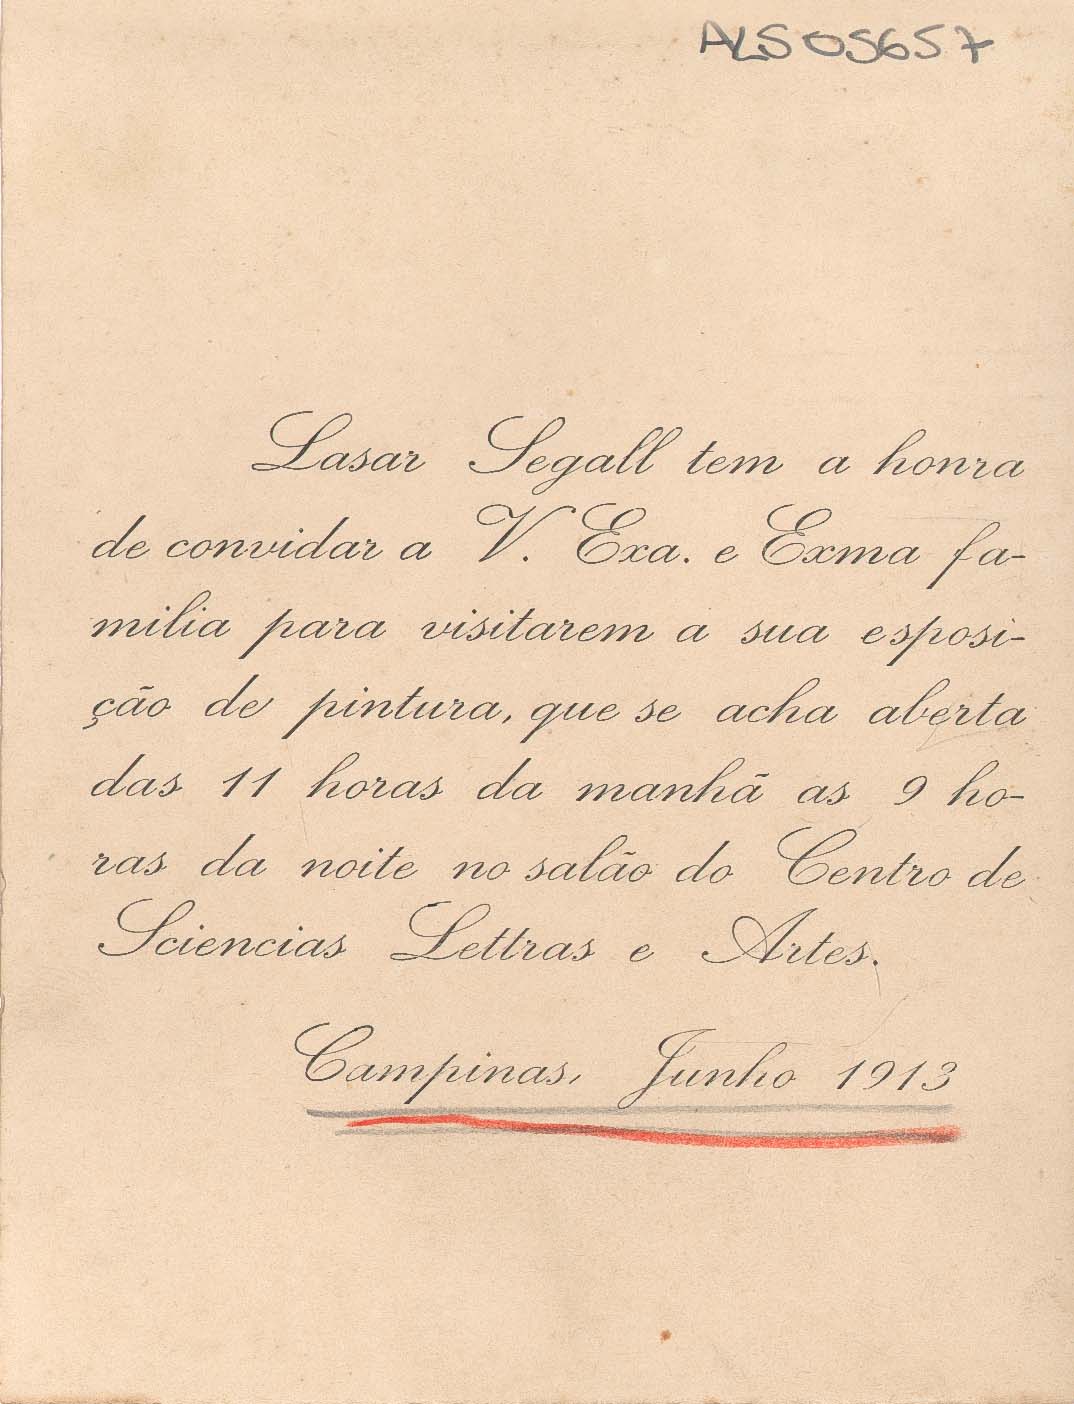 ALS 05657
Lasar Segall tem a honra
de convidar a V. Exa. e Exma fa-
milia para visitarem a sua esposi-
ção de pintura, que se acha aberta
das 11 horas da manhã as 9 ho-
ras da noite no salão do Centro de
Sciencias Lettras e Artes.
Campinas, Junho 1913